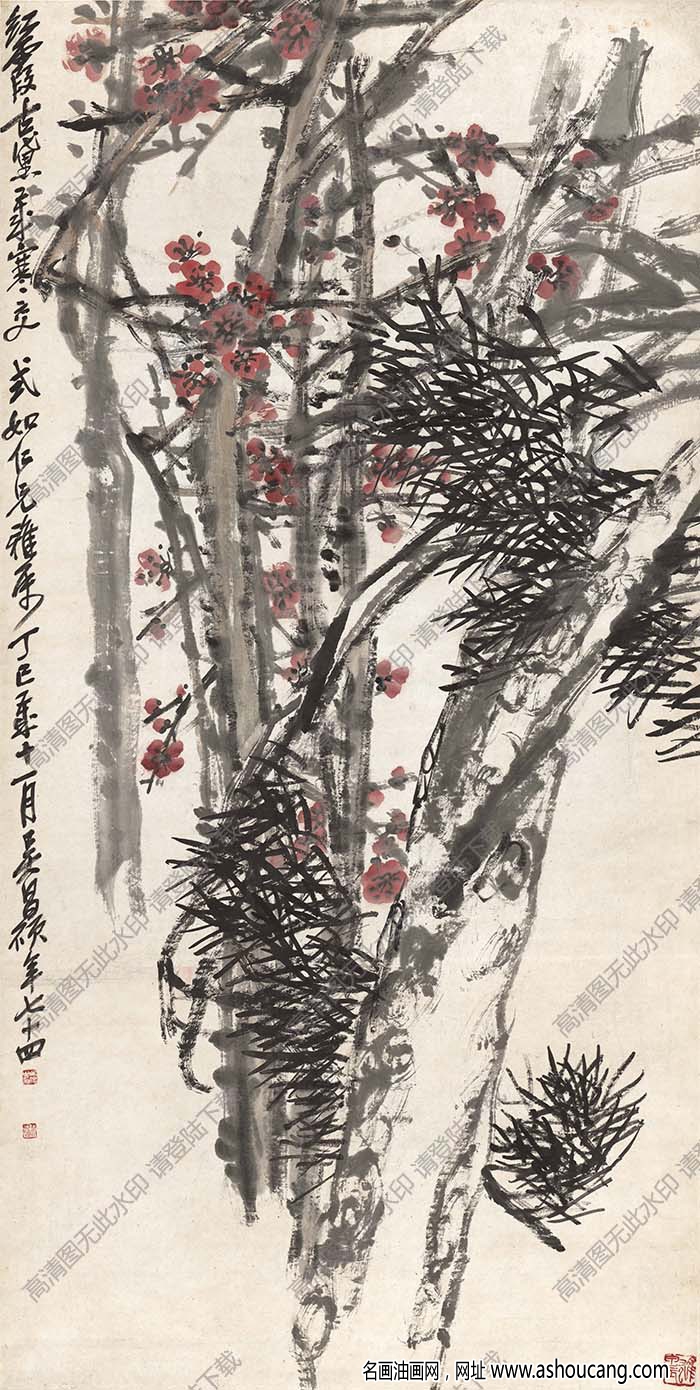 红霞古黛成寒交 式如仁兄雅属 丁巳年十一月 吴昌硕年七十四
高清图无此水印 请登陆下载
名画油画网，网址 www.ashoucang.com